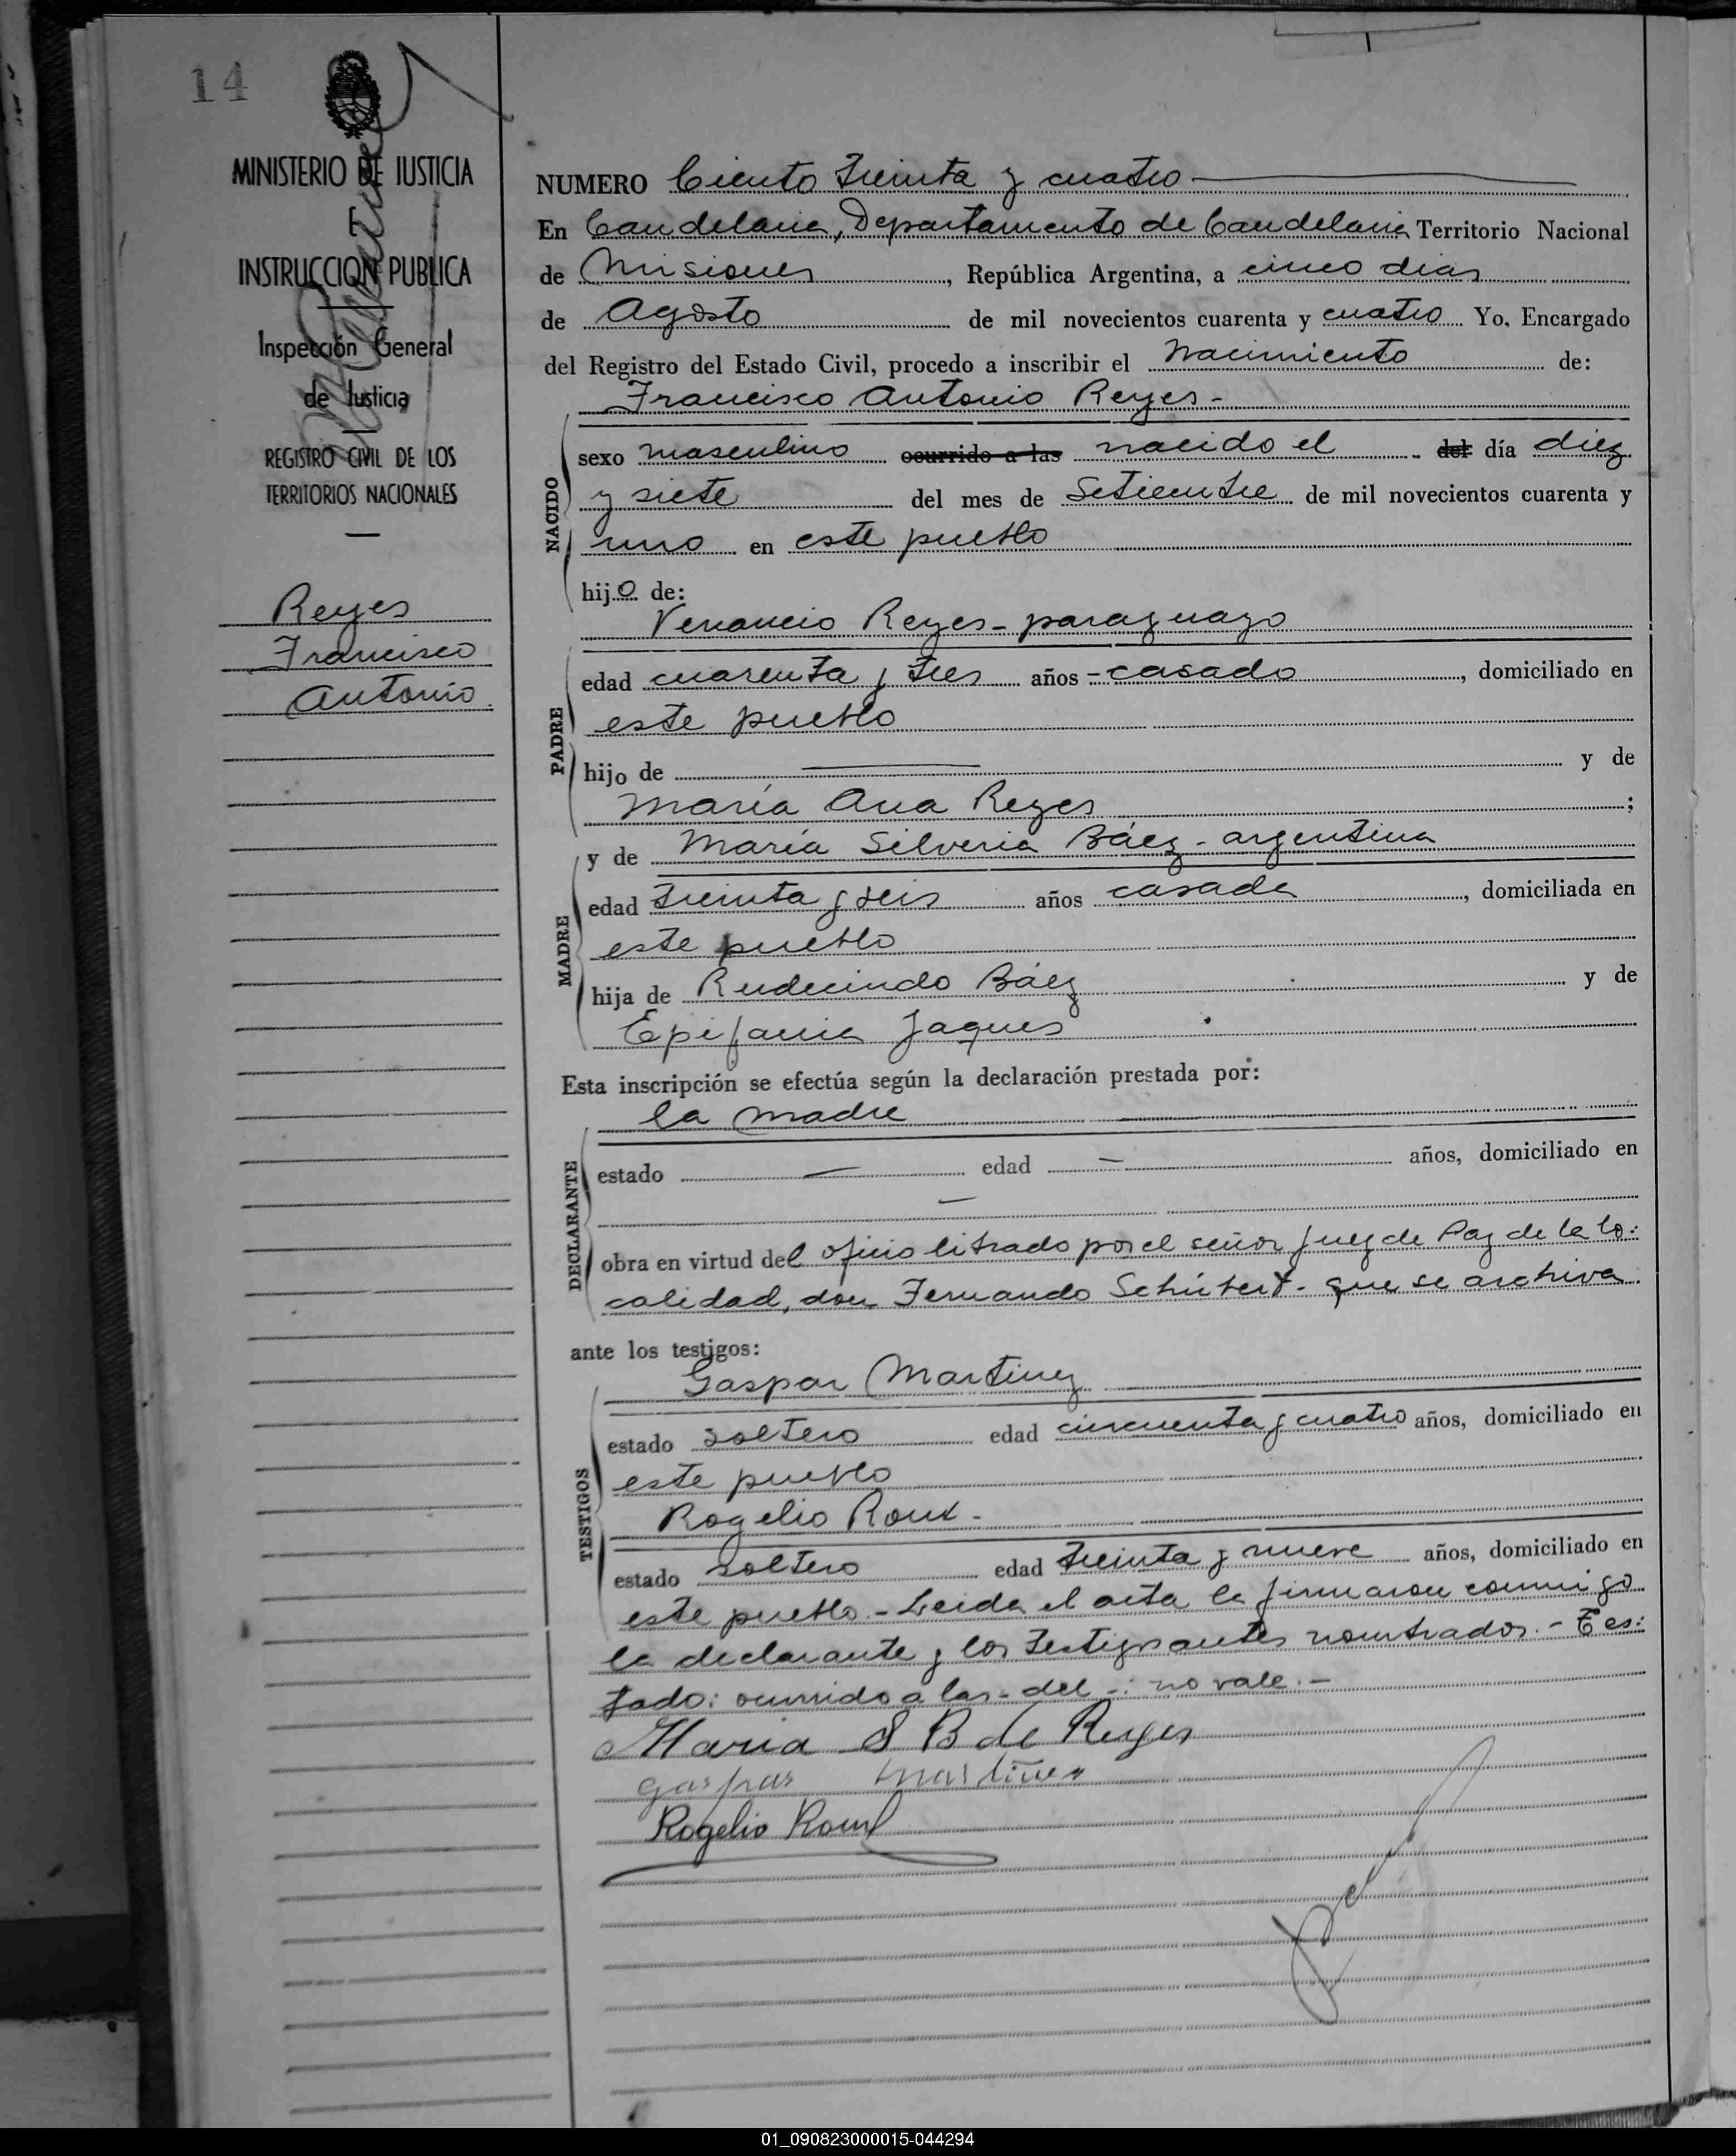 14
MINISTERIO DE JUSTICIA
E
INSTRUCCION PUBLICA
Inspección General
de Justicia
REGISTRO CIVIL DE LOS
TERRITORIOS NACIONALES
Reyes
Francisco
Antonio
NUMERO Ciento treinta y cuatro
En Candelaria, Departamento de Candelaria Territorio Nacional
de Misiones, República Argentina, a cinco dias
de Agosto de mil novecientos cuarenta y cuatro Yo, Encargado
del Registro del Estado Civil, procedo a inscribir el nacimiento de:
Francisco Antonio Reyes-
NACIDO
sexo masculino ocurrido a las nacido el del día diez
y siete del mes de Setiembre de mil novecientos cuarenta y
uno en este pueblo
hijo de:
Venancio Reyes- paraguayo
PADRE
edad cuarenta y tres años - casado, domiciliado en
este pueblo
hijo de y de
María Ana Reyes;
y de María Silveria Báez- argentina
MADRE
edad treinta y seis años casada, domiciliada en
este pueblo
hija de Rudecindo Báez y de
Epifania Jaques
Esta inscripción se efectúa según la declaración prestada por:
la madre
DECLARANTE
estado — edad — años, domiciliado en
—
obra en virtud del oficio librado por el señor Juez de Paz de la lo:
calidad, don Fernando Schúbert- que se archiva
ante los testigos:
Gaspar Martinez
TESTIGOS
estado soltero edad cincuenta y cuatro años, domiciliado en
este pueblo
Rogelio Roux-
estado soltero edad treinta y nueve años, domiciliado en
este pueblo.- Leida el acta la firmaron conmigo
la declarante y los testigos antes nombrados.- Tes:
tado: ocurrido a las - del -: no vale.-
Maria S B de Reyes
gaspar martinez
Rogelio Roux
01_090823000015-044294